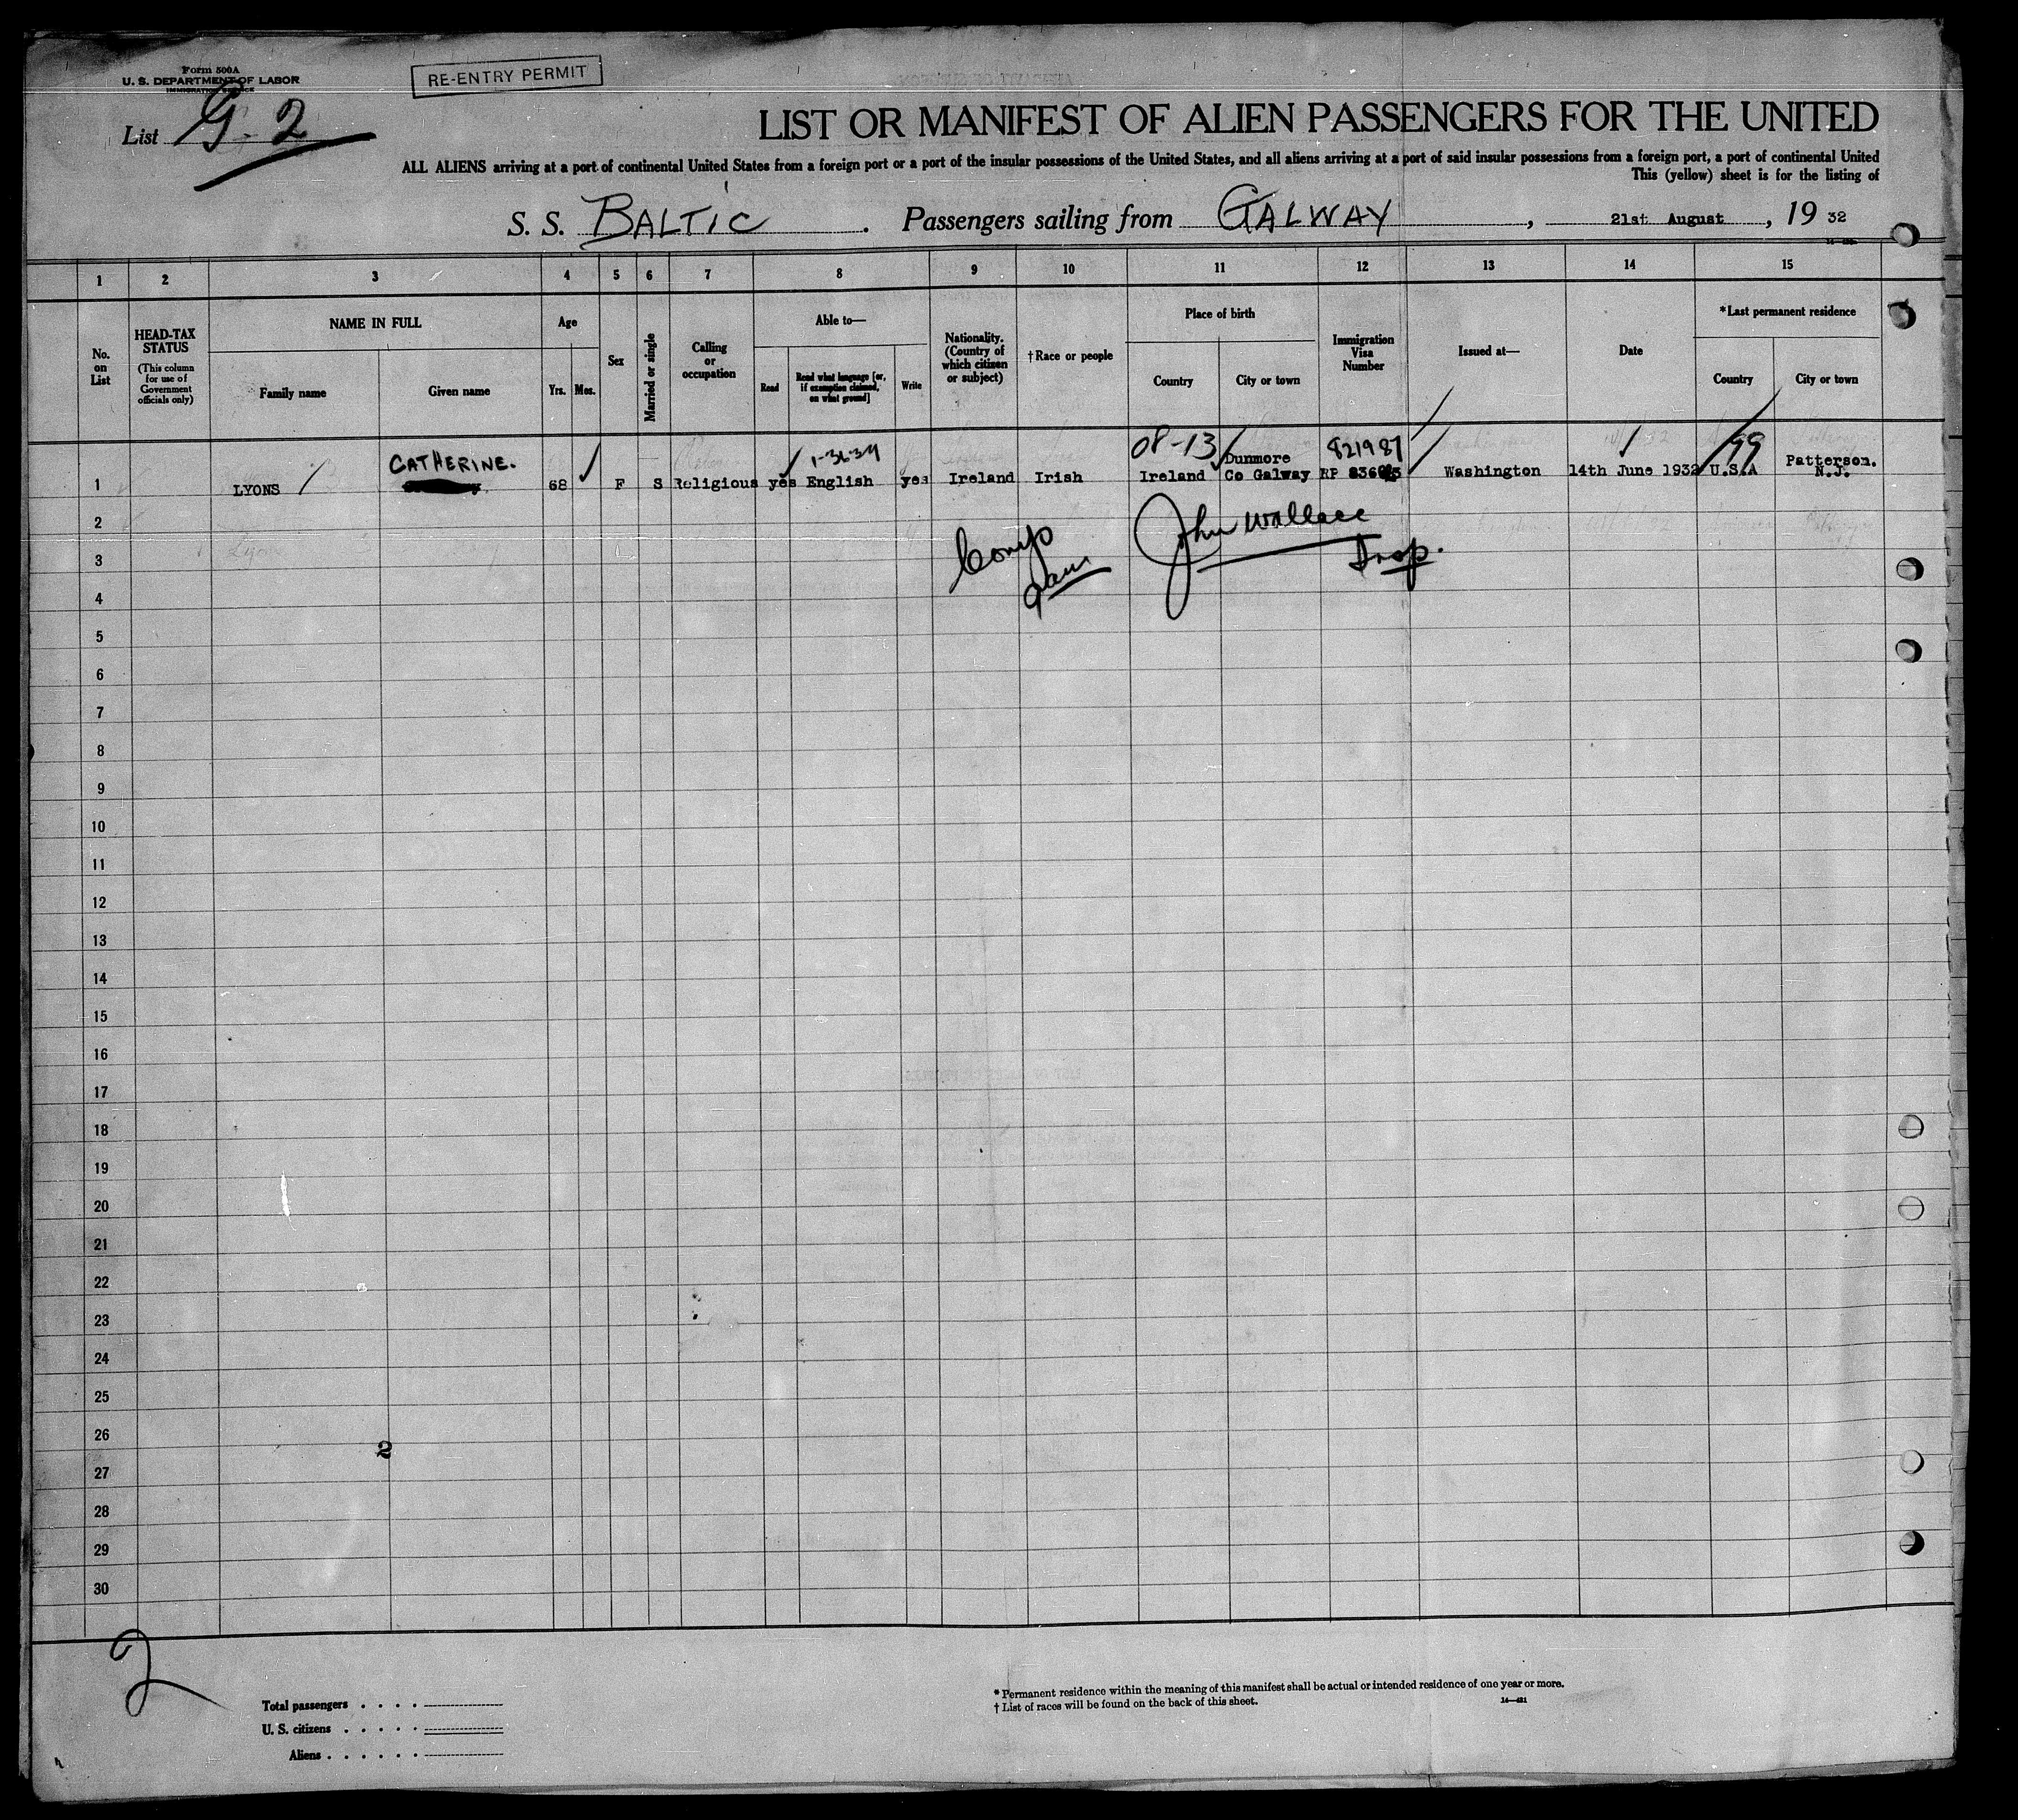 Form 500A
U. S. DEPARTMENT OF LABOR
IMMIGRATION SERVICE
RE-ENTRY PERMIT
List G-2
LIST OR MANIFEST OF ALIEN PASSENGERS FOR THE UNITED
ALL ALIENS arriving at a port of continental United States from a foreign port or a port of the insular possessions of the United States, and all aliens arriving at a port of said insular possessions from a foreign port, a port of continental United
This (yellow) sheet is for the listing of
S. S. BALTIC. Passengers sailing from GALWAY, 21st August, 19 32
1 2 3 4 5 6 7 8 9 10 11 12 13 14 15
No. on List
HEAD-TAX STATUS
(This column for use of Government officials only)
NAME IN FULL
Family name
Given name
Age
Yrs. Mos.
Sex
Married or single
Calling or occupation
Able to—
Read
Read what language [or, if exemption claimed, on what ground]
Write
Nationality. (Country of which citizen or subject)
†Race or people
Place of birth
Country
City or town
Immigration Visa Number
Issued at—
Date
*Last permanent residence
Country
City or town
CATHERINE.
1-3634
08-13
821987
99
1 LYONS 68 F S Religious yes English yes Ireland Irish Ireland Dunmore Co Galway RP Washington 14th June 1932 U.S.A Patterson. N.J.
2
John Wallace
Comp
Insp.
3
4
5
6
7
8
9
10
11
12
13
14
15
16
17
18
19
20
21
22
23
24
25
26
2
27
28
29
30
2
Total passengers . . . .
U. S. citizens . . . . .
Aliens . . . . . .
* Permanent residence within the meaning of this manifest shall be actual or intended residence of one year or more.
† List of races will be found on the back of this sheet.
14—481